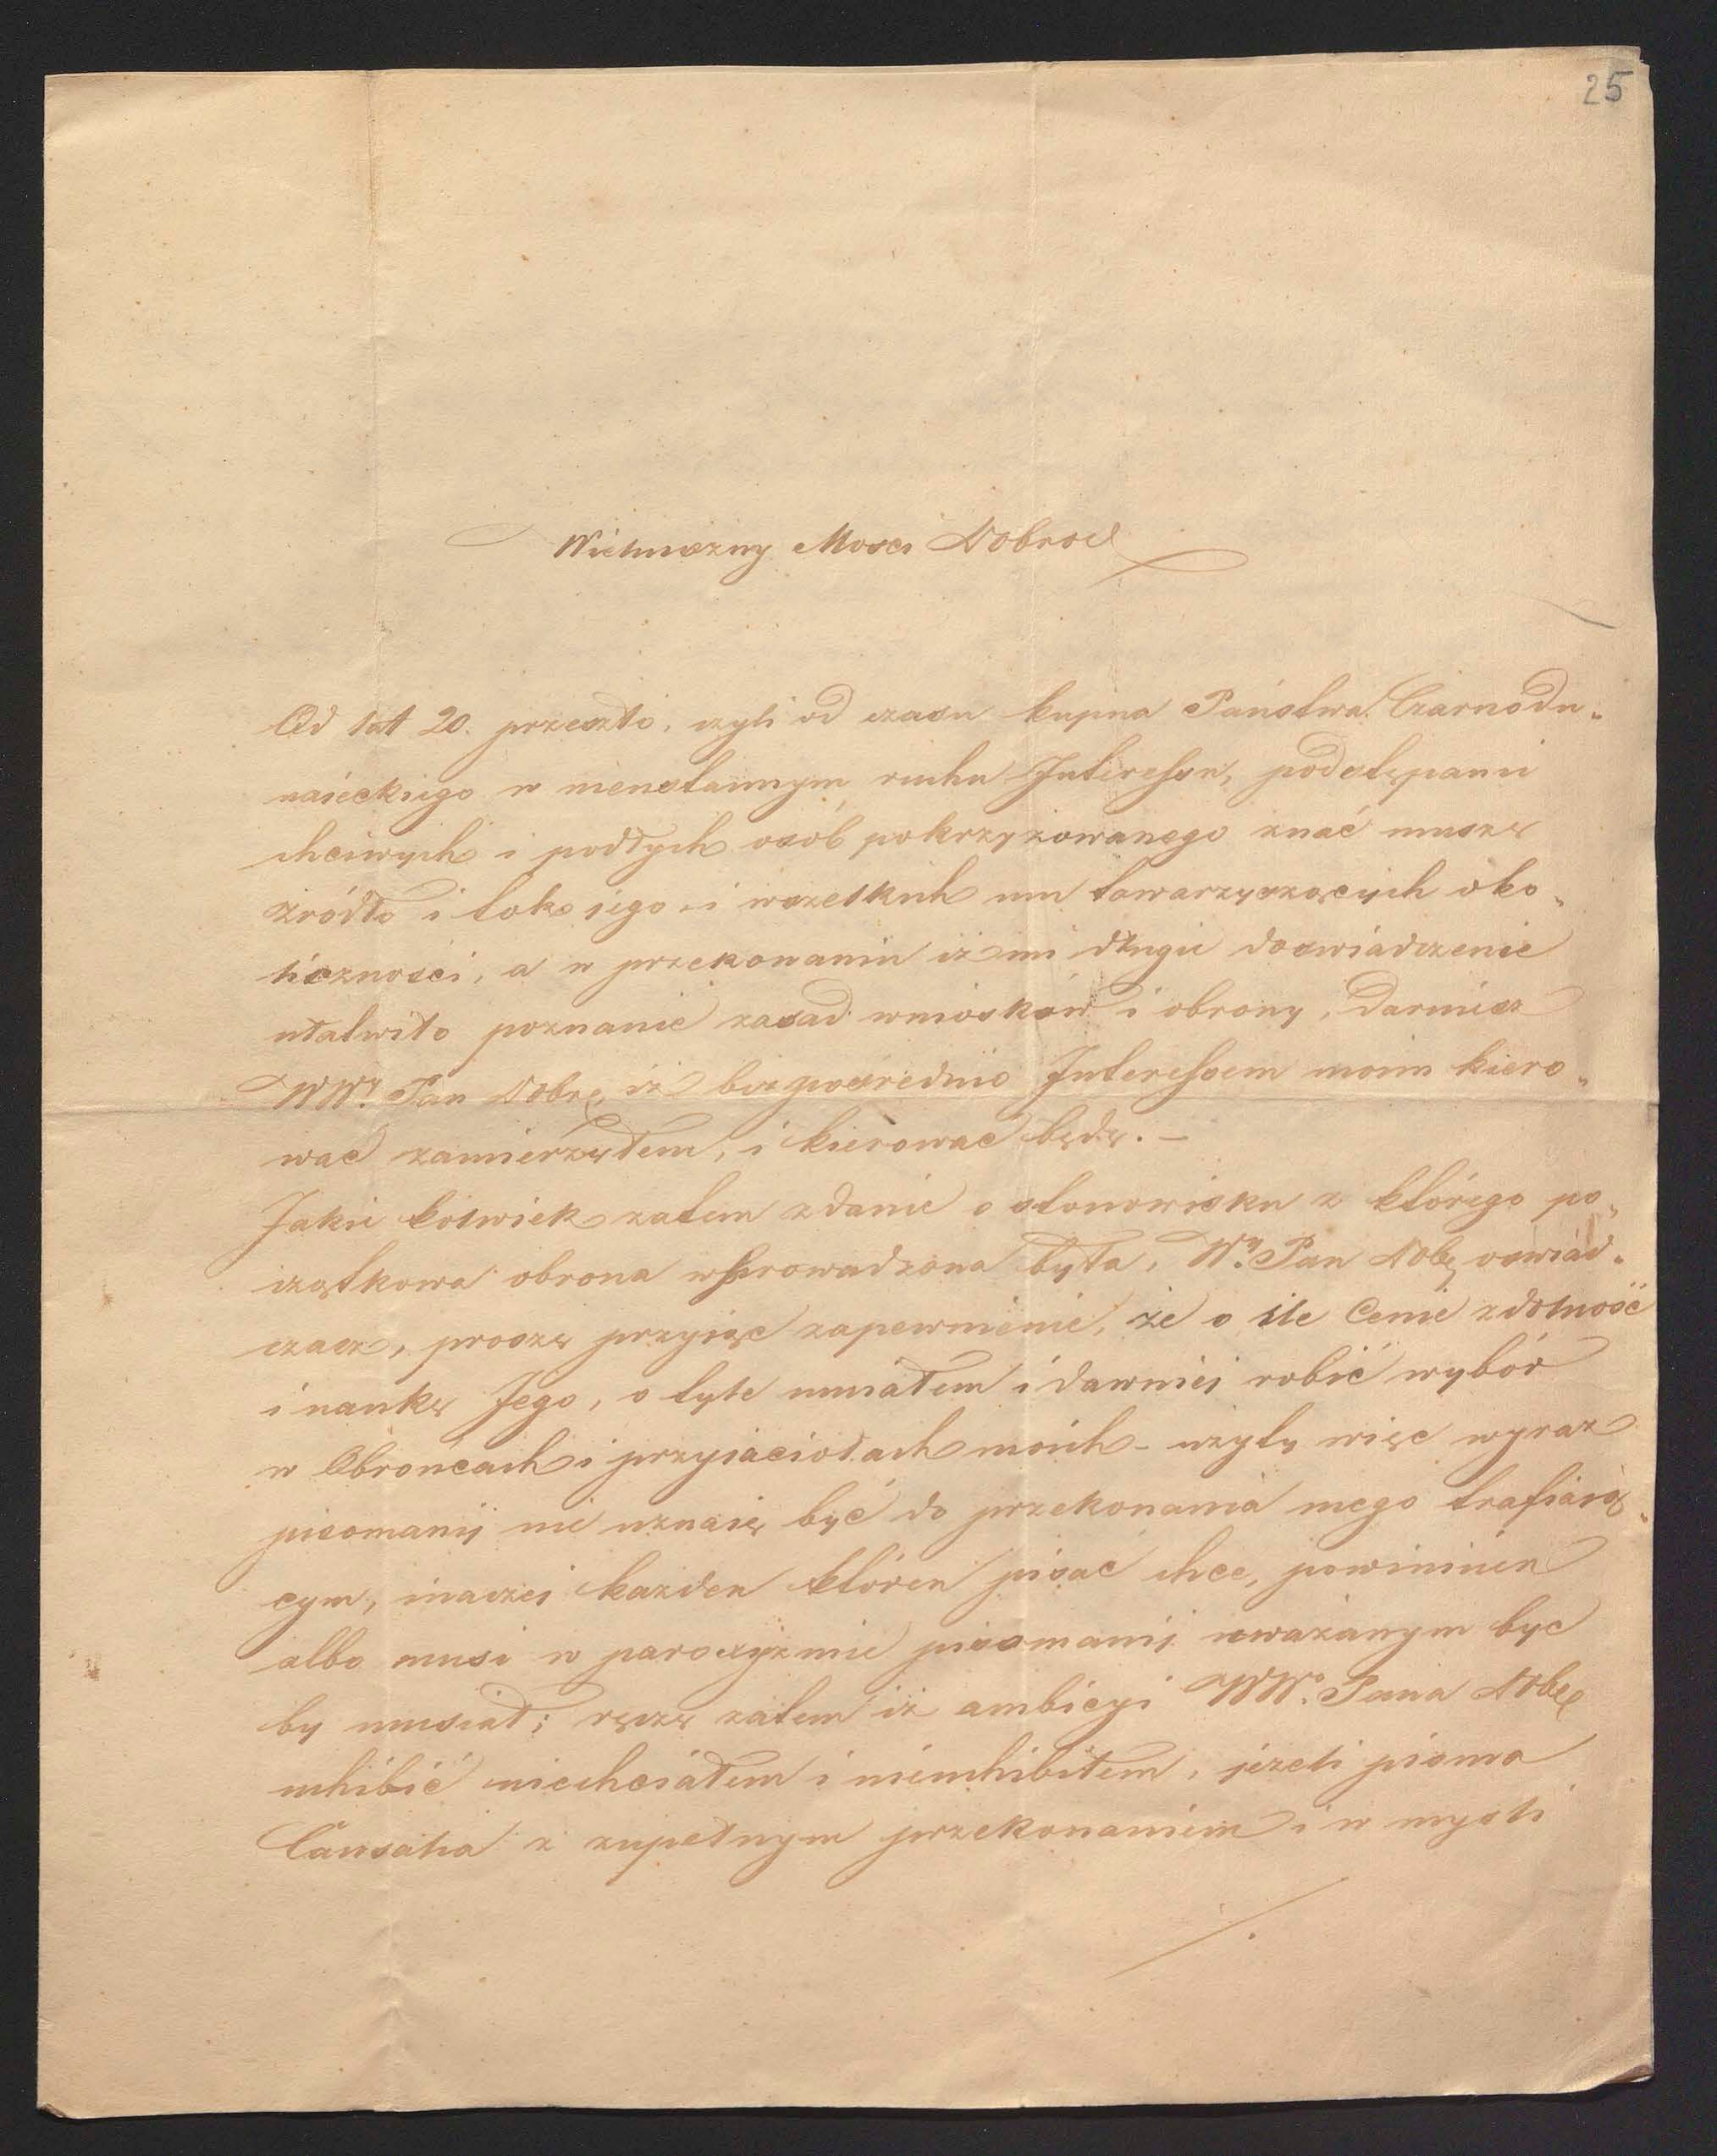 25
Wielmożny Mosci Dobrod
Od lat 20. przeszło, czyli od czasu kupna Państwa Czarnodu„
naieckiego w nieustannym ruchu Interessu, podstępami
chciwych i podłych osób pokrzyżowanego znać muszę
źródło i tok jego i wszelkich mu towarzyszących oko„
liczności, a w przekonaniu iż mi długie doswiadczenie
ułatwiło poznanie zasad wniosków i obrony, Daruiesz
WWy. Pan Dobrę, iż bezpośrednio Interessem moim kiero„
wać zamierzyłem, i kierować będę. –
Jakie kolwiek zatem zdanie o stonowisku z którego po„
czątkowa obrona wprowadzona była, Wy. Pan Dobę oswiad„
czasz, proszę przyiąć zapewnienie, że o ile Cenie zdolność
i naukę Jego, o tyle umiałem i dawniei robić wybór
w Obrońcach i przyiaciołach moich – użyty więc wyraz
pisomanij nie uznaię być do przekonania mego trafiaią„
cym, inaczei każden któren pisać chce, powininien
albo musi w paroxyzmie pisomanij uważanym być
by musiał; ręczę zatem iż ambicyi WWo. Pana Dobę
uhibić niechciałem i nieuhibiłem, jeżeli pismo
Causalia z zupełnym przekonaniem i w mysli
./.